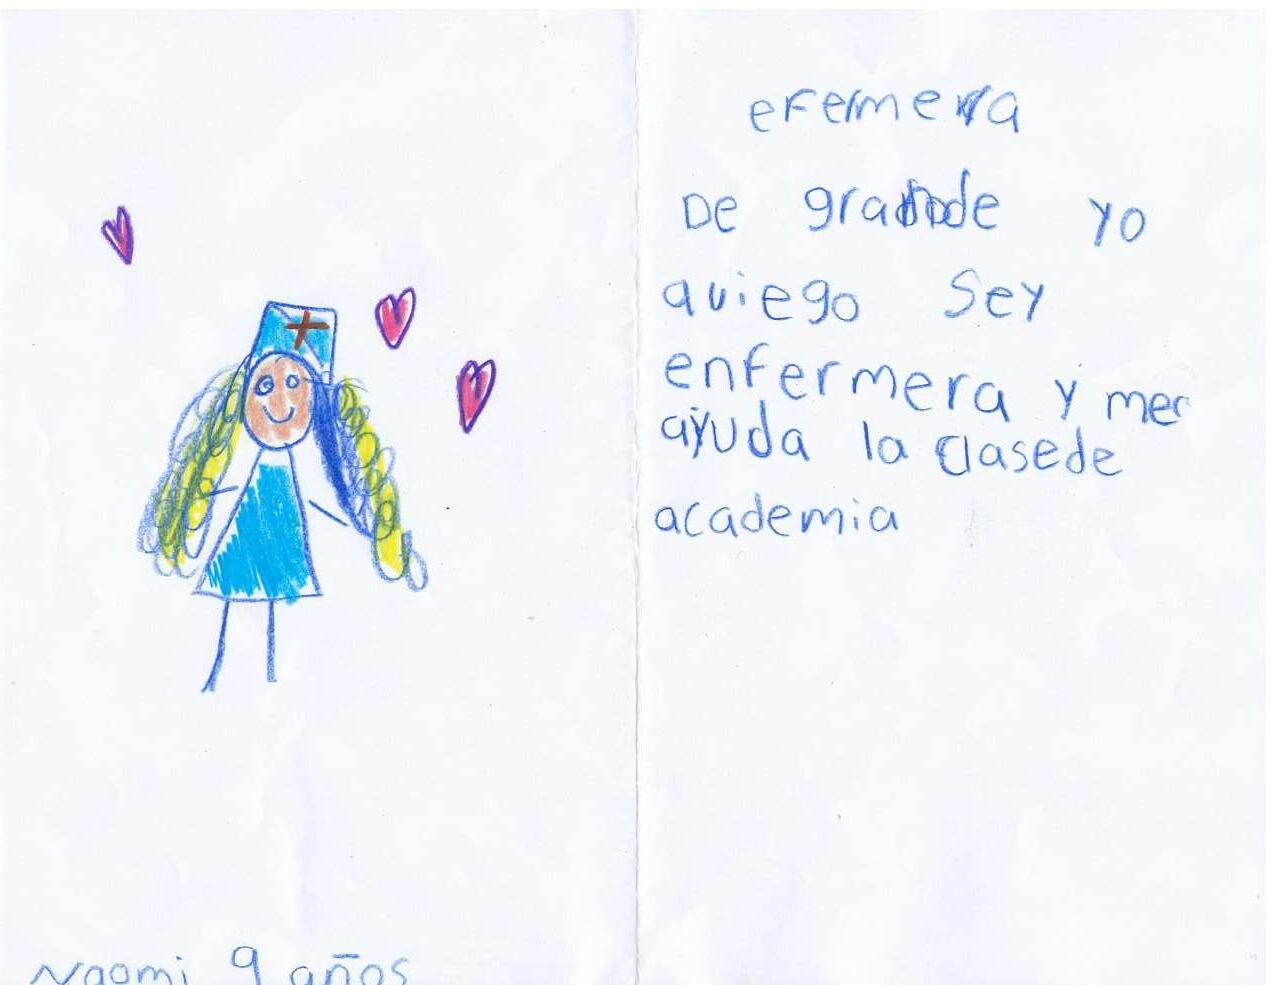 efermera
De grande yo
quiego sey
enfermera y mer
ayuda la clasede
academia
Naomi 9 años